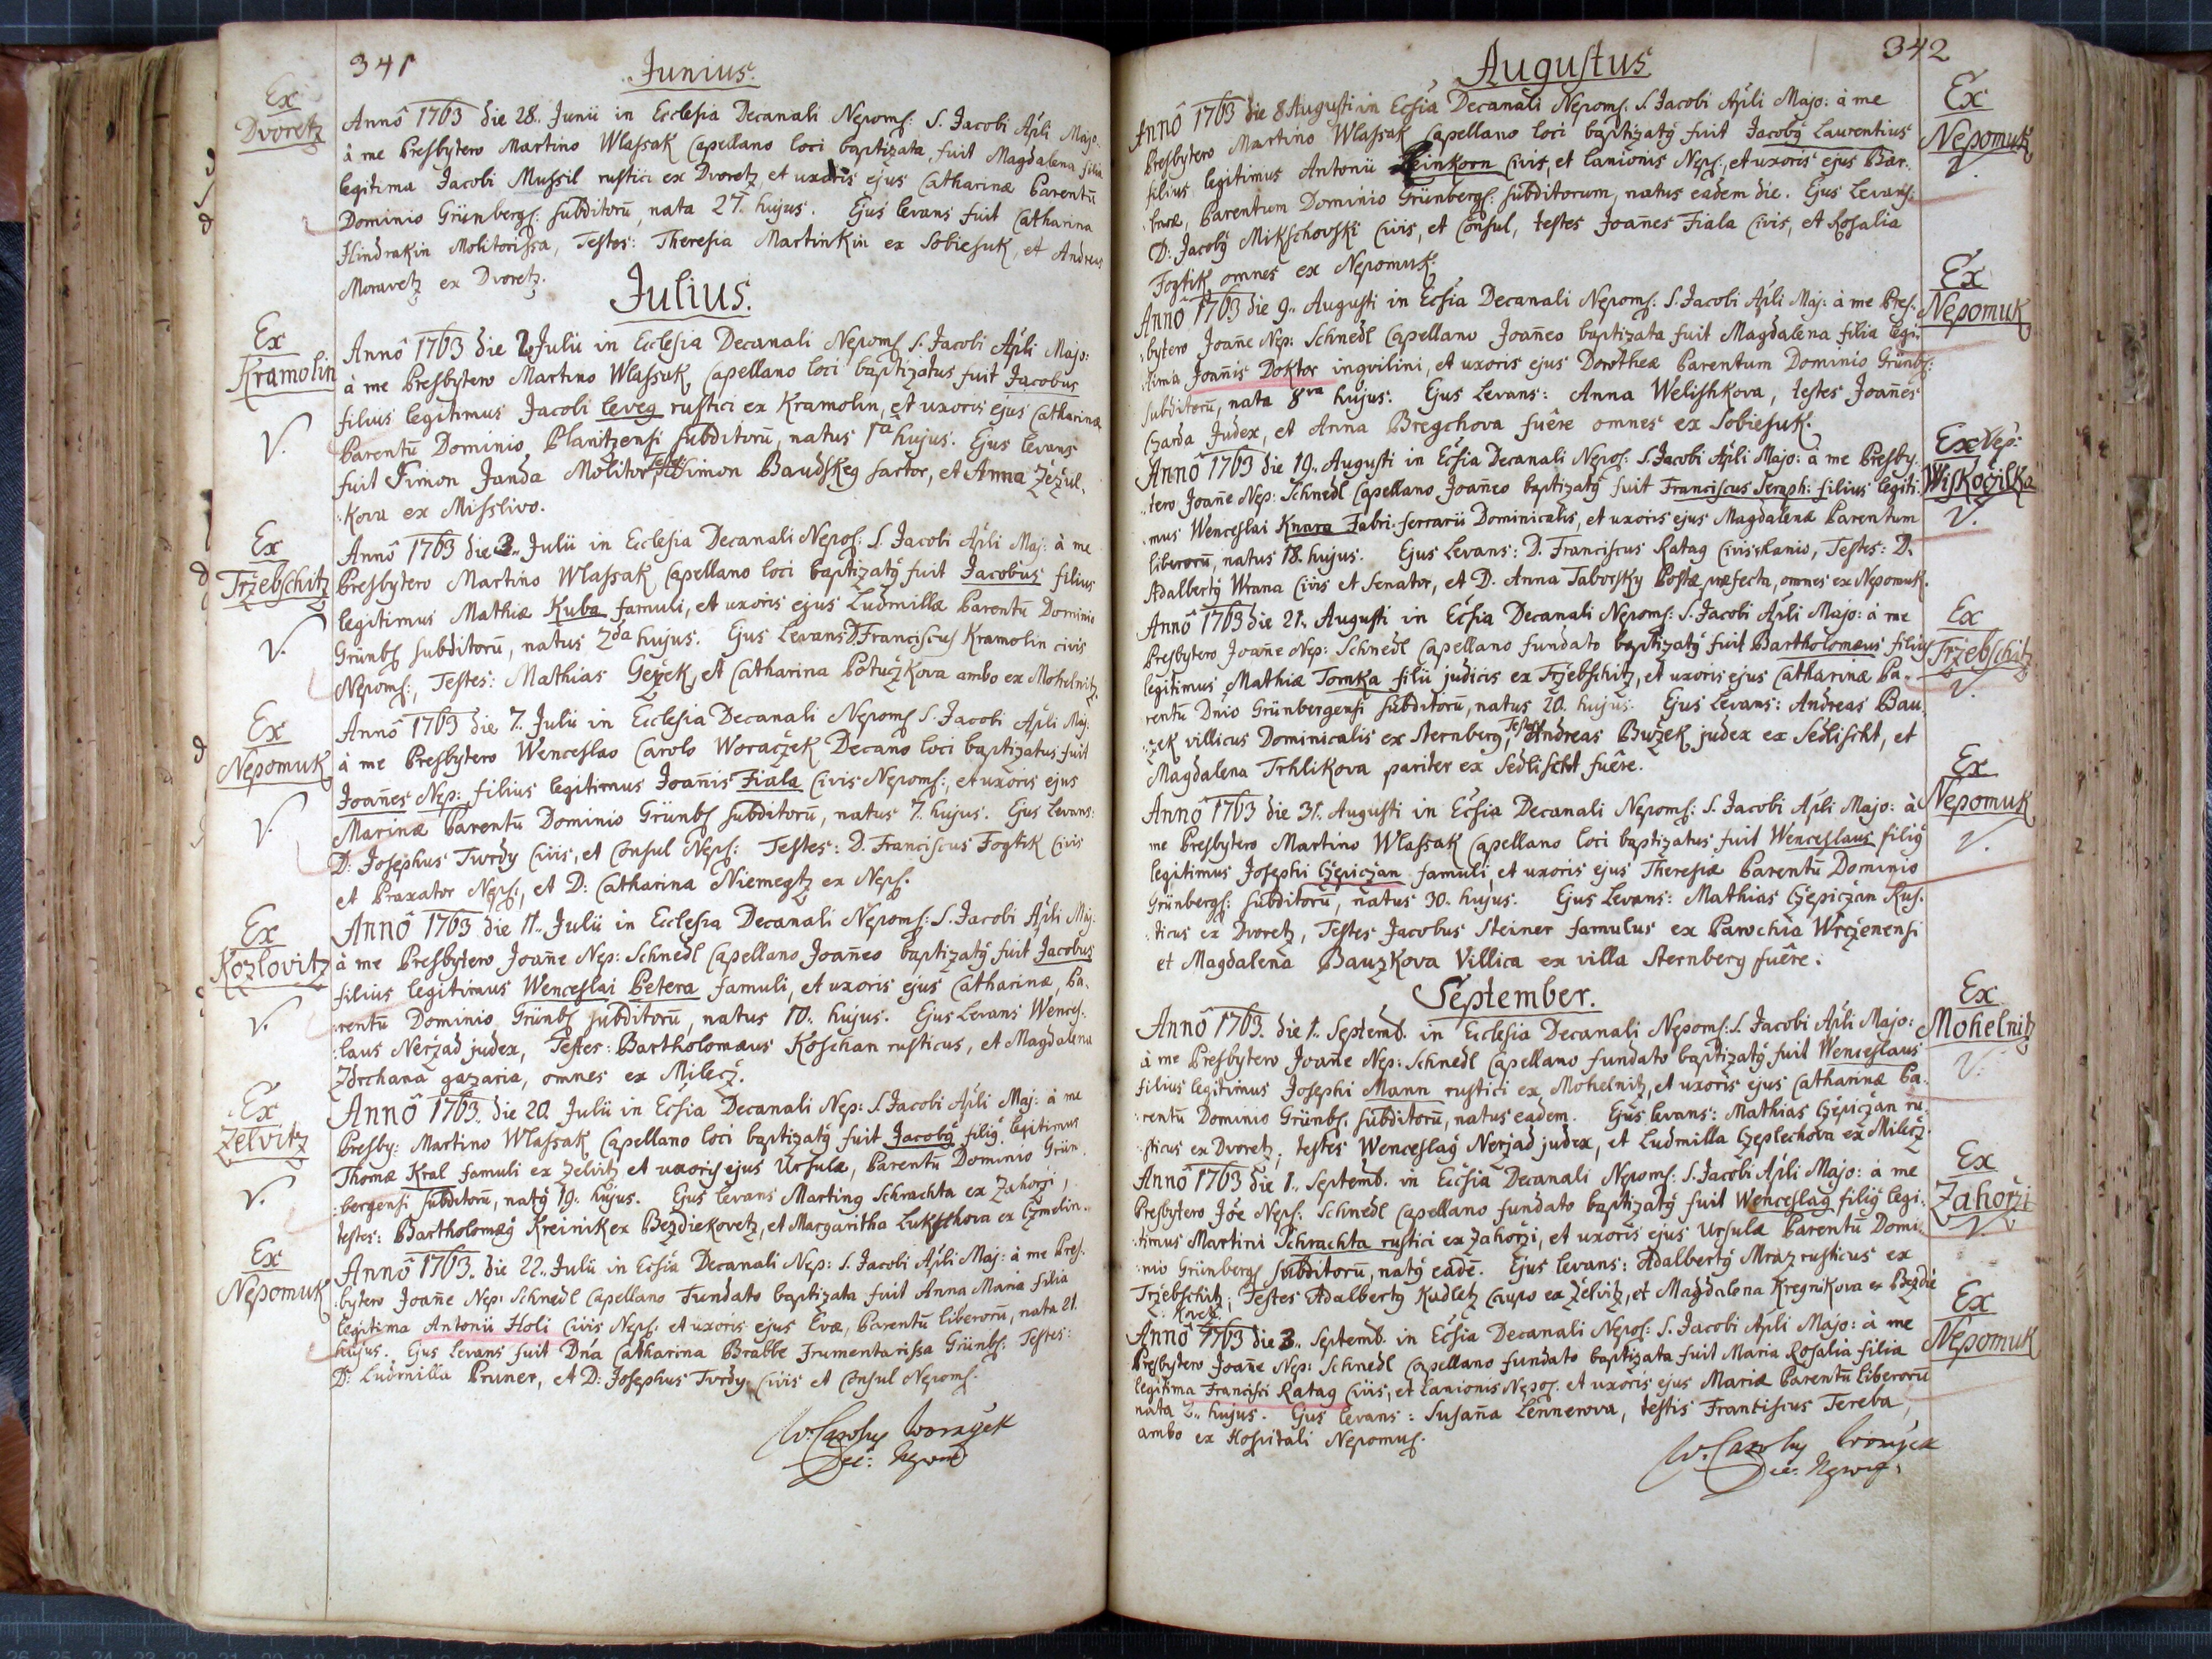 341
Junius.
Ex
Dvoretz
Annô 1763 die 28. Junii in Ecclesia Decanali Nepoms: S. Jacobi Apli Majo:
à me Presbytero Martino Wlassak Capellano loci baptizata fuit Magdalena filia
legitima Jacobi Mussil rustici ex Dvoretz, et uxoris ejus Catharinæ Parentū
Dominio Grünbergs: subditorū, nata 27. hujus. Ejus levans fuit Catharina
Hindrakin Molitorissa, Testes: Theresia Martinkin ex Sobiesuk, et Andreas
Moravetz ex Dvoretz.
Julius.
Ex
Kramolin
V.
Annô 1763 die 2 Julii in Ecclesia Decanali Nepoms S. Jacobi Apli Majo:
à me Presbytero Martino Wlassak Capellano loci baptizatus fuit Jacobus
filius legitimus Jacobi Leveg rustici ex Kramolin, et uxoris ejus Catharinæ
Parentū Dominio Planitzensi subditorū, natus 1a hujus. Ejus Levans
fuit Simon Janda Molitor, Testes Simon Baudskeg sartor, et Anna Zezul-
kova ex Misslivo.
Ex
Trzebschitz
V.
Annô 1763 die 3. Julii in Ecclesia Decanali Nepos: S. Jacobi Apli Maj: à me
Presbytero Martino Wlassak Capellano loci baptizatq fuit Jacobus filius
legitimus Mathiæ Kuba famuli, et uxoris ejus Ludmillæ Parentū Dominio
Grünbs subditorū, natus 2da hujus. Ejus Levans D Franciscus Kramolin civis
Nepoms:, Testes: Mathias Gezek, et Catharina Potuczkova ambo ex Mohelnitz.
Ex
Nepomuk
V.
Annô 1763 die 7. Julii in Ecclesia Decanali Nepoms S. Jacobi Apli Maj:
à me Presbytero Wenceslao Carolo Woraczek Decano loci baptizatus fuit
Joañes Nep: filius legitimus Joañis Fiala Civis Nepoms:, et uxoris ejus
Marinæ Parentū Dominio Grünbs subditorū, natus 7. hujus. Ejus Levans:
D: Josephus Twrdy Civis, et Consul Neps: Testes: D. Franciscus Fogtik Civis
et Braxator Neps:, et D: Catharina Niemegtz ex Neps.
Ex
Kozlovitz
V.
Annô 1763 die 11. Julii in Ecclesia Decanali Nepoms: S. Jacobi Apli Maj:
à me Presbytero Joañe Nep: Schnedl Capellano Joañeo baptizatq fuit Jacobus
filius legitimus Wenceslai Petera famuli, et uxoris ejus Catharinæ, Pa-
rentū Dominio Grünbs subditorū, natus 10. hujus. Ejus Levans Wences-
laus Nerzad judex, Testes: Bartholomæus Koschan rusticus, et Magdalena
Zdrchana gazaria, omnes ex Milecz.
Ex
Zelvitz
V.
Annô 1763. die 20. Julii in Ecsia Decanali Nep: S. Jacobi Apli Maj: à me
Presby: Martino Wlassak Capellano loci baptizatq fuit Jacobq filiq legitimus
Thomæ Kral famuli ex Zelvitz et uxoris ejus Ursulæ, Parentū Dominio Grün-
bergensi subditorū, natq 19. hujus. Ejus levans Martinq Schrachta ex Zahorzi,
testes: Bartholomæq Kreinik ex Bezdiekovetz, et Margaritha Lukschova ex Czmelin.
Ex
Nepomuk
Annô 1763. die 22. Julii in Ecsia Decanali Nep: S. Jacobi Apli Maj: à me Pres-
bytero Joañe Nep: Schnedl Capellano Fundato baptizata fuit Anna Maria filia
legitima Antonii Holi Civis Neps: et uxoris ejus Evæ, Parentū liberorū, nata 21.
hujus. Ejus levans fuit Dna Catharina Brabbe Frumentarissa Grünbs: Testes:
D: Ludmilla Pruner, et D: Josephus Twrdy Civis et Consul Nepoms.
W. Carolus Woraczek
Dec: Nepom
342
Augustus
Annô 1763 die 8 Augusti in Ecsia Decanali Nepoms: S. Jacobi Apli Majo: à me
Presbytero Martino Wlassak Capellano loci baptizatq fuit Jacobq Laurentius
filius legitimus Antonii Leinkorn Civis, et Lanionis Neps:, et uxoris ejus Bar-
baræ, Parentum Dominio Grünbergs: subditorum, natus eadem die. Ejus Levans:
D: Jacobq Mikschovski Civis, et Consul, testes Joañes Fiala Civis, et Rosalia
Fogtik, omnes ex Nepomuk.
Ex
Nepomuk
V.
Annô 1763 die 9. Augusti in Ecsia Decanali Nepoms: S. Jacobi Apli Maj: à me Pres-
bytero Joañe Nep: Schnedl Capellano Joañeo baptizata fuit Magdalena filia legi-
tima Joañis Doktor inqvilini, et uxoris ejus Dorotheæ Parentum Dominio Grünbs:
subditorū, nata 8va hujus: Ejus Levans: Anna Welishkova, testes Joañes
Czarda Judex, et Anna Bregchova fuêre omnes ex Sobiesuk.
Ex
Nepomuk
Annô 1763 die 19. Augusti in Ecsia Decanali Nepos: S. Jacobi Apli Majo: à me Presby-
tero Joañe Nep: Schnedl Capellano Joañeo baptizatq fuit Franciscus Seraph: filius legiti-
mus Wenceslai Knara Fabri ferrarii Dominicalis, et uxoris ejus Magdalenæ Parentum
liberorū, natus 18. hujus. Ejus Levans: D. Franciscus Ratag Civis Lanio, Testes: D.
Adalbertq Wrana Civis et Senator, et D. Anna Taborsky Postæ præfecta, omnes ex Nepomuk.
Ex Nep:
Wiskocžilka
V.
Annô 1763 die 21. Augusti in Ecsia Decanali Nepoms: S. Jacobi Apli Majo: à me
Presbytero Joañe Nep: Schnedl Capellano fundato baptizatq fuit Bartholomæus filius
legitimus Mathiæ Tomka filii judicis ex Trzebschitz, et uxoris ejus Catharinæ Pa-
rentū Dnio Grünbergensi subditorū, natus 20. hujus. Ejus Levans: Andreas Bau-
zek villicus Dominicalis ex Sternberg, Testes Andreas Buzek judex ex Sedlischt, et
Magdalena Trhlikova pariter ex Sedlischt fuêre.
Ex
Trzebschitz
V.
Annô 1763 die 31. Augusti in Ecsia Decanali Nepoms: S. Jacobi Apli Majo: à
me Presbytero Martino Wlassak Capellano loci baptizatus fuit Wenceslaus filiq
legitimus Josephi Czepiczan famuli, et uxoris ejus Theresiæ Parentū Dominio
Grünbergs: subditorū, natus 30. hujus. Ejus Levans: Mathias Czepiczan Rus-
ticus ex Dvoretz, Testes Jacobus Steiner famulus ex Parochia Wrczenensi
et Magdalena Bauzkova Villica ex villa Sternberg fuêre.
Ex
Nepomuk
V.
September.
Annô 1763. die 1. Septemb. in Ecclesia Decanali Nepoms: S. Jacobi Apli Majo:
à me Presbytero Joañe Nep: Schnedl Capellano fundato baptizatq fuit Wenceslaus
filius legitimus Josephi Mann rustici ex Mohelnitz, et uxoris ejus Catharinæ Pa-
rentū Dominio Grünbs. subditorū, natus eadem. Ejus levans: Mathias Czepiczan ru-
sticus ex Dvoretz, testes Wenceslaq Nerzad judex, et Ludmilla Czeplechova ex Milecz.
Ex
Mohelnitz
V.
Annô 1763 die 1. Septemb. in Ecclsia Decanali Nepoms: S. Jacobi Apli Majo: à me
Presbytero Jöe Neps. Schnedl Capellano fundato baptizatq fuit Wenceslaq filiq legi-
timus Martini Schrachta rustici ex Zahorzi, et uxoris ejus Ursulæ Parentū Domi-
nio Grünbergs subditorū, natq eadē. Ejus levans: Adalbertq Mraz rusticus ex
Trzebschitz; Testes Adalbertq Kudletz Caupo ex Zelvitz, et Magdalena Kregnikova ex Bezdie
Kovetz
Ex
Zahorzi
V.
Annô 1763 die 3. Septemb. in Ecsia Decanali Nepos: S. Jacobi Apli Majo: à me
Presbytero Joañe Nep: Schnedl Capellano fundato baptizata fuit Maria Rosalia filia
legitima Francisci Ratag Civis, et Lanionis Nepos. et uxoris ejus Mariæ Parentū liberorū
nata 2. hujus. Ejus levans: Susaña Lennerova, testis Frantiscus Tereba,
ambo ex Hospitali Nepomus.
Ex
Nepomuk
W. Carolus Woraczek
Dec: Nepom